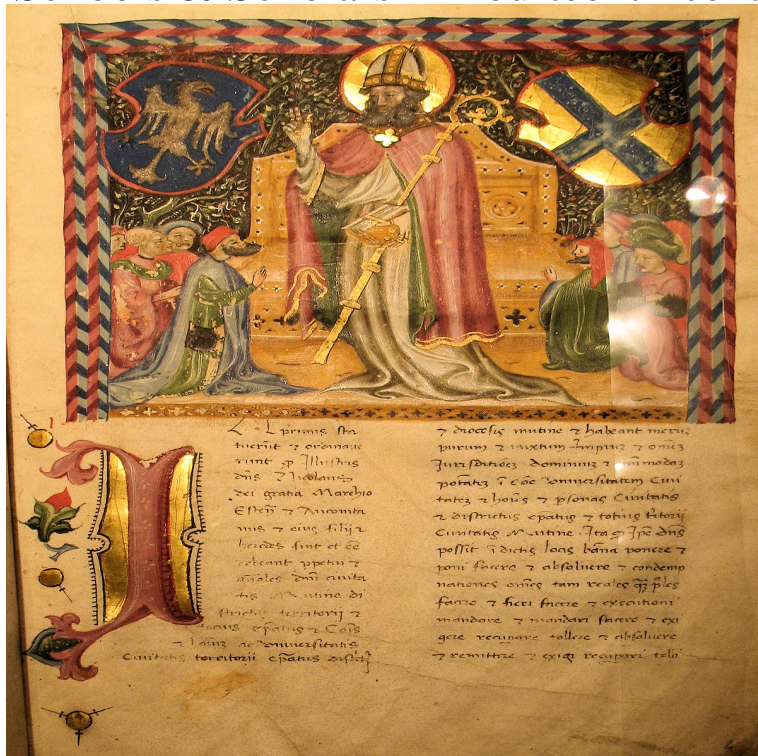 I primis sta
tuerūt ⁊ ordinave
runt ꝙ Illustris
dn̄s dn̄s Nicolaus
dei gratia Marchio
Esteñ ⁊ Anconita
nus ⁊ eius filii ⁊
heredes sint et eē
debeant ppetui ⁊
gn̄ales dn̄i civita
tis Mutine di
strictus territorii ⁊
tocius ep̄atus ⁊ Cōis
⁊ hoīuz ac universitatis
Civitatis territorii ep̄atus district
⁊ diocesis mutine ⁊ habeant meruz
purum ⁊ mixtum Imperiuz ⁊ omēz
Jurisditōez dominiuz ⁊ omimodaz
potatez ī cōe universitatem Civi
tatez ⁊ hoīes ⁊ psonas Civitatis
⁊ districtus ep̄atus ⁊ totius titorii
Civitatis Mutine. Ita ꝙ Ipe dn̄s
possit ī dictis locis bāna ponere ⁊
poni facere ⁊ absolvere ⁊ condemp
nationes omēs tam reales qz̄ p̄les
facere ⁊ fieri facere ⁊ executioni
mandare ⁊ mandari facere ⁊ exi
gere recupare tollere ⁊ absolvere
⁊ remittere ⁊ exigi recupari tolli